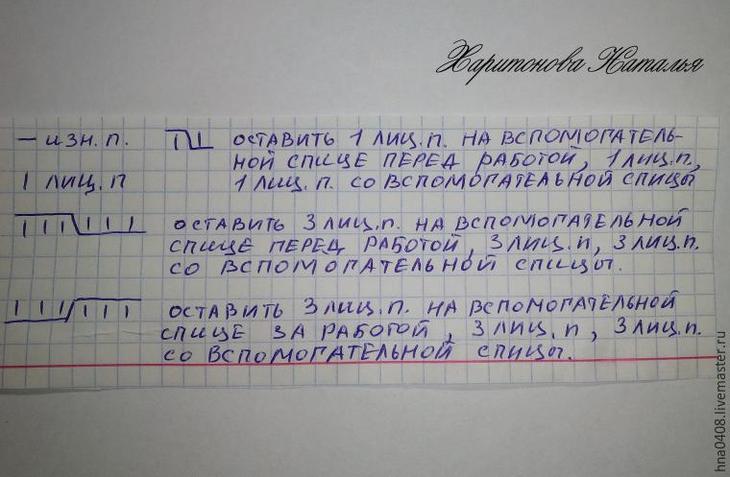 Харитонова Наталья
— изн. п.
оставить 1 лиц. п. на вспомогатель-
ной спице перед работой, 1 лиц. п.,
1 лиц. п. со вспомогательной спицы
| лиц. п
оставить 3 лиц. п. на вспомогательной
спице перед работой, 3 лиц. п, 3 лиц. п.
со вспомогательной спицы.
оставить 3 лиц. п. на вспомогательной
спице за работой, 3 лиц. п, 3 лиц. п.
со вспомогательной спицы.
hna0408.livemaster.ru